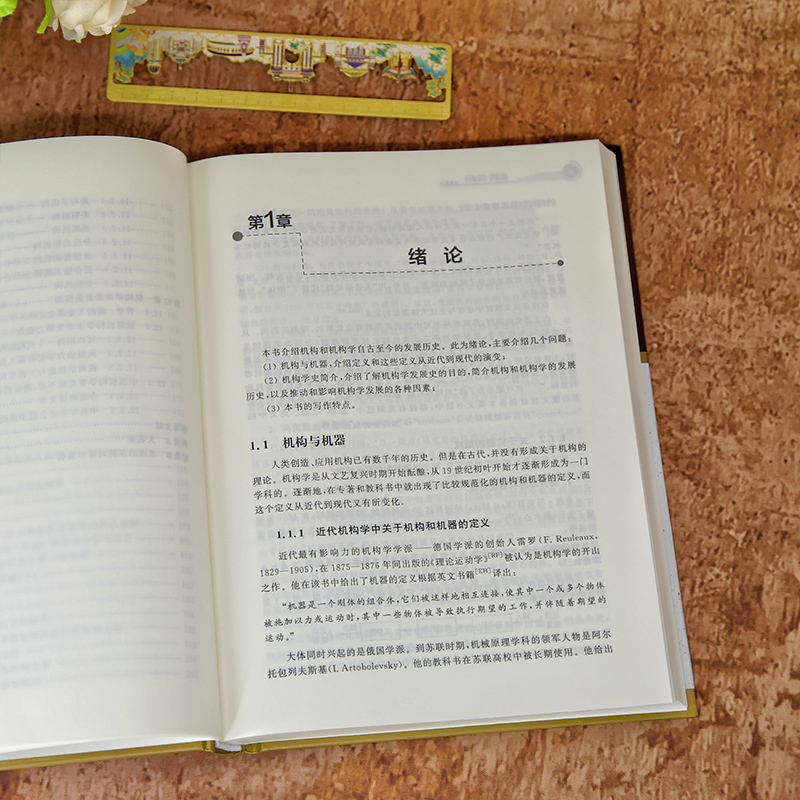 第1章
绪 论
本书介绍机构和机构学自古至今的发展历史。此为绪论,主要介绍几个问题:
(1) 机构与机器,介绍定义和这些定义从近代到现代的演变;
(2) 机构学史简介,介绍了解机构学发展史的目的,简介机构和机构学的发展
历史,以及推动和影响机构学发展的各种因素;
(3) 本书的写作特点。
1.1 机构与机器
人类创造、应用机构已有数千年的历史。但是在古代,并没有形成关于机构的
理论。机构学是从文艺复兴时期开始酝酿,从 19 世纪初叶开始才逐渐形成为一门
学科的。逐渐地,在专著和教科书中就出现了比较规范化的机构和机器的定义,而
这个定义从近代到现代又有所变化。
1.1.1 近代机构学中关于机构和机器的定义
近代最有影响力的机构学学派——德国学派的创始人雷罗(F. Reuleaux,
1829—1905),在 1875—1876 年间出版的《理论运动学》[RF]被认为是机构学的开山
之作。他在该书中给出了机器的定义根据英文书籍[EH]译出:
“机器是一个刚体的组合体,它们被这样地相互连接,使其中一个或多个物体
被施加以力或运动时,其中一些物体被导致执行期望的工作,并伴随着期望的
运动。”
大体同时兴起的是俄国学派。到苏联时期,机械原理学科的领军人物是阿尔
托包列夫斯基(I. Artobolevsky)。他的教科书在苏联高校中被长期使用。他给出